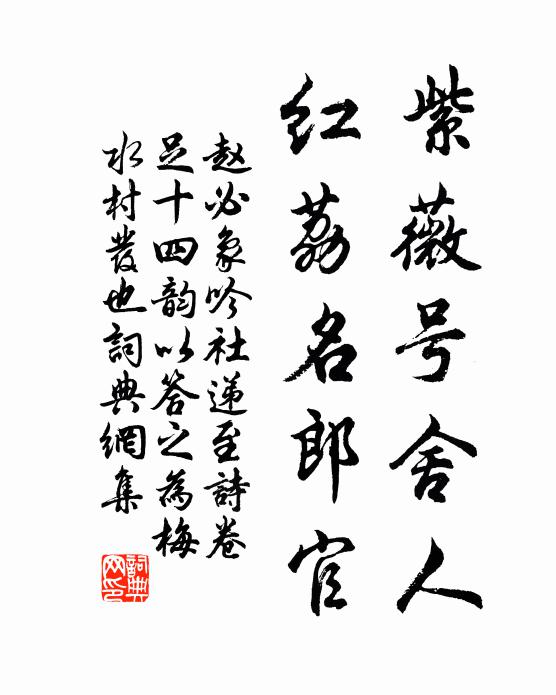 紫薇号舍人
红荔名郎官
赵必象吟社递至詩卷
足十四韵以答之為梅
水村發也詞典網集
詞典网印